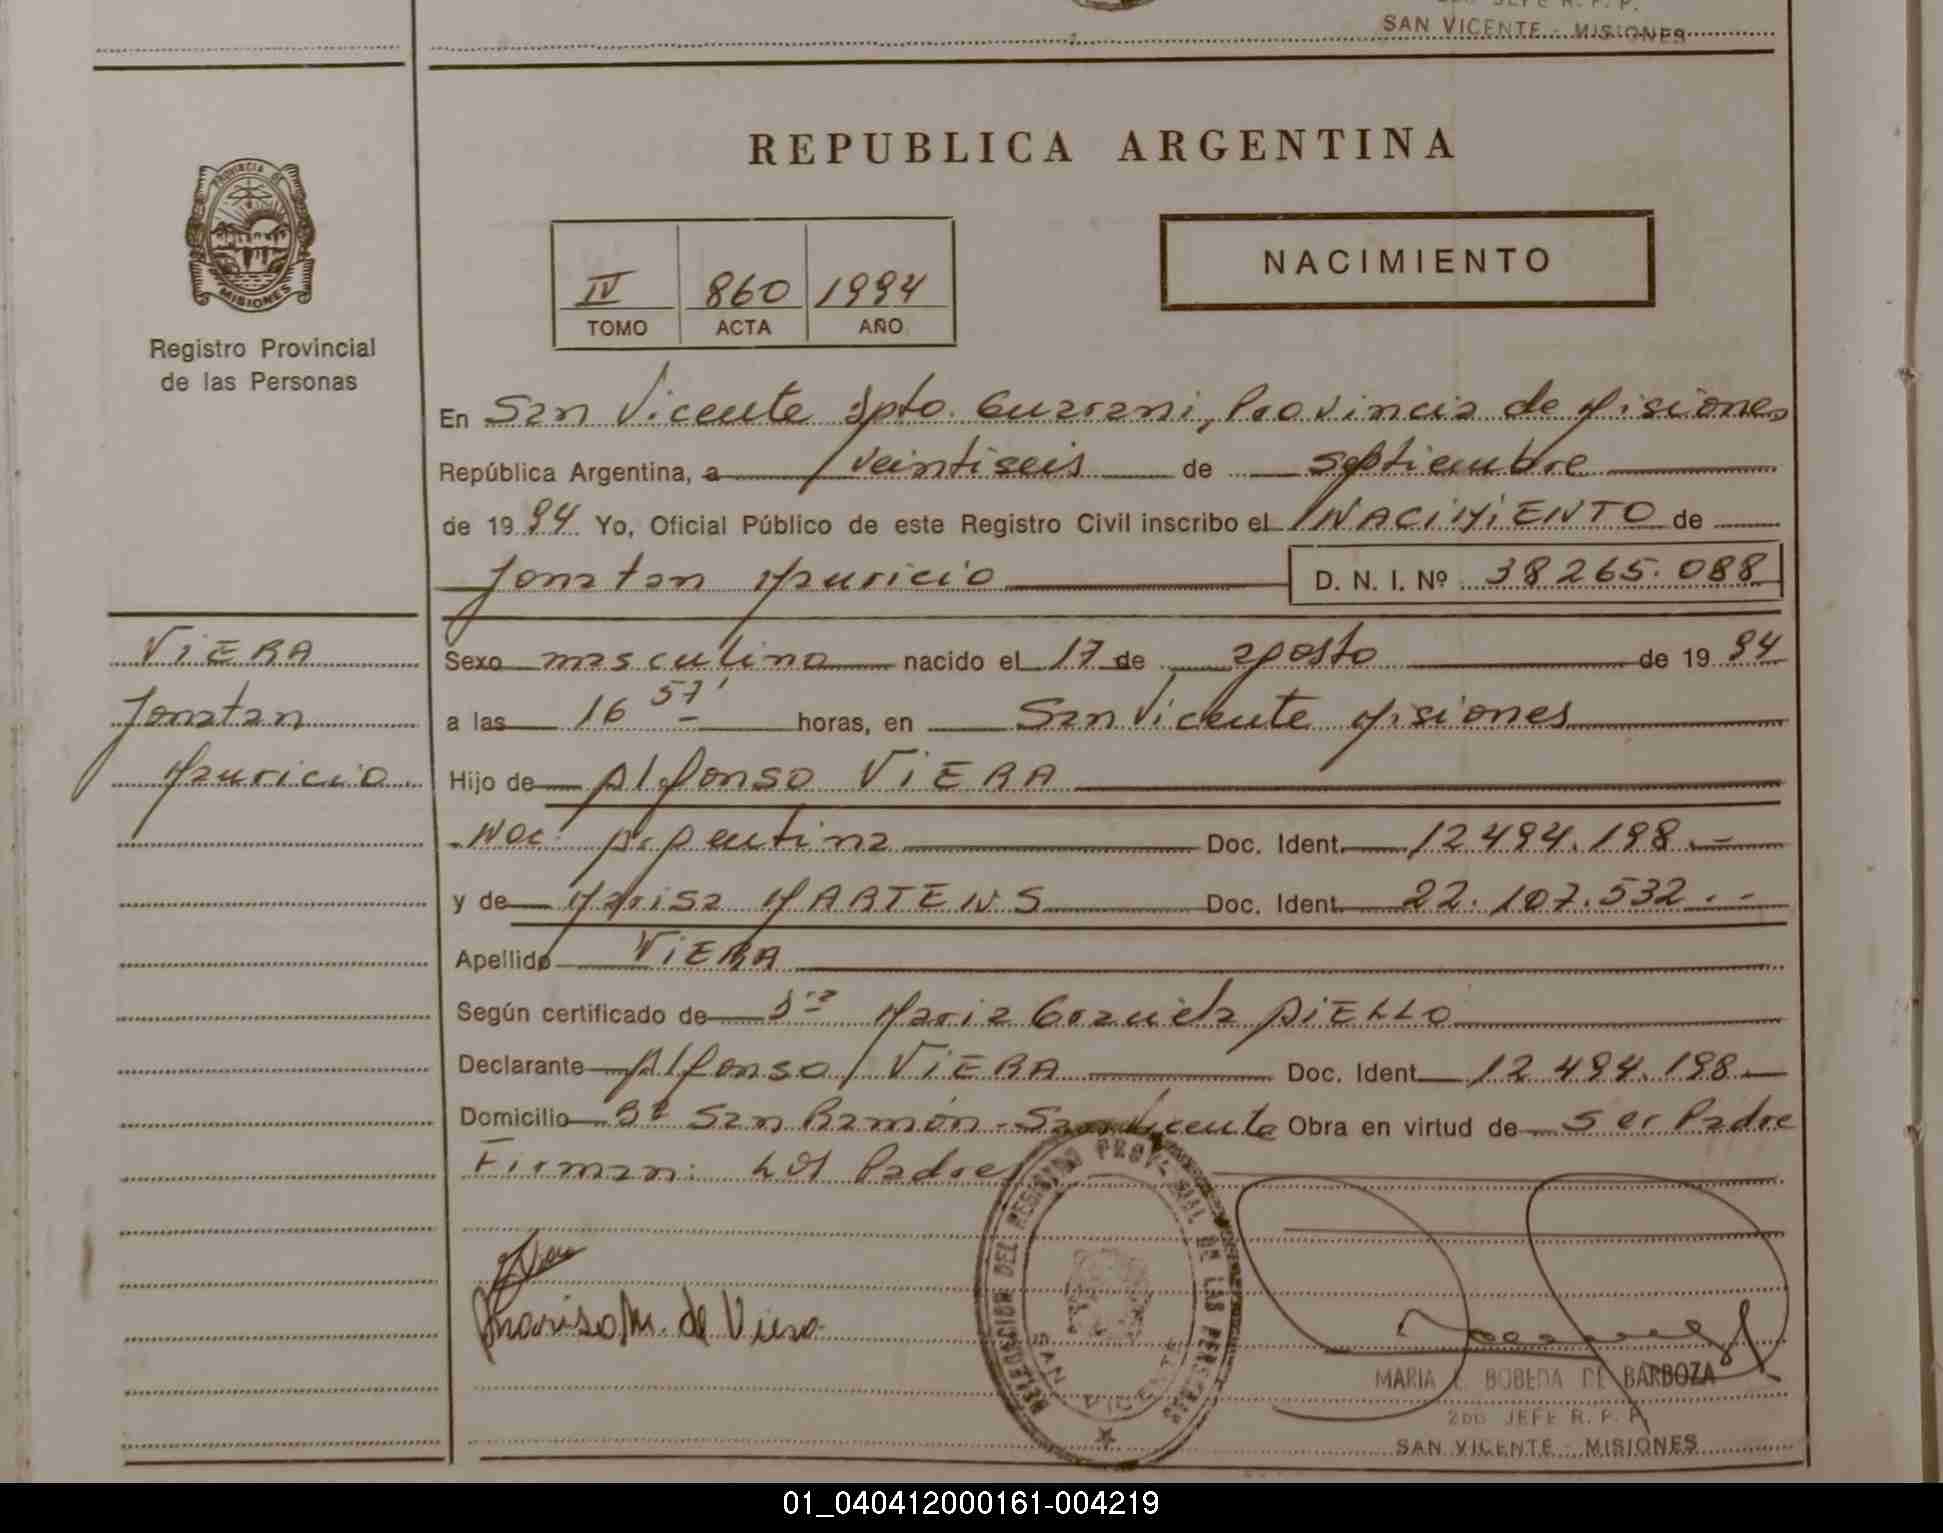 2do JEFE R. P. P.
SAN VICENTE - MISIONES
PROVINCIA DE
MISIONES
Registro Provincial
de las Personas
REPUBLICA ARGENTINA
IV 860 1994
TOMO ACTA AÑO
NACIMIENTO
En San Vicente Dpto. Guarani, Provincia de Misiones
República Argentina, a veintiseis de septiembre
de 1994 Yo, Oficial Público de este Registro Civil inscribo el NACIMIENTO de
Jonatan Mauricio D. N. I. Nº 38265.088
VIERA
Jonatan
Mauricio
Sexo masculino nacido el 17 de agosto de 1994
a las 16 57' horas, en San Vicente Misiones
Hijo de Alfonso VIERA
Nac. Argentina Doc. Ident. 12494.198.-
y de Marisa MARTENS Doc. Ident. 22.107.532.-
Apellido VIERA
Según certificado de Dra Maria Graciela AIELLO
Declarante Alfonso VIERA Doc. Ident. 12494.198.
Domicilio Bº San Ramón - San Vicente Obra en virtud de ser Padre
Firman: Los Padres
Marisa M. de Viera
DELEGACION DEL REGISTRO PROVINCIAL DE LAS PERSONAS
SAN VICENTE
MARIA BOBEDA DE BARBOZA
2do JEFE R. P. P.
SAN VICENTE - MISIONES
01_040412000161-004219